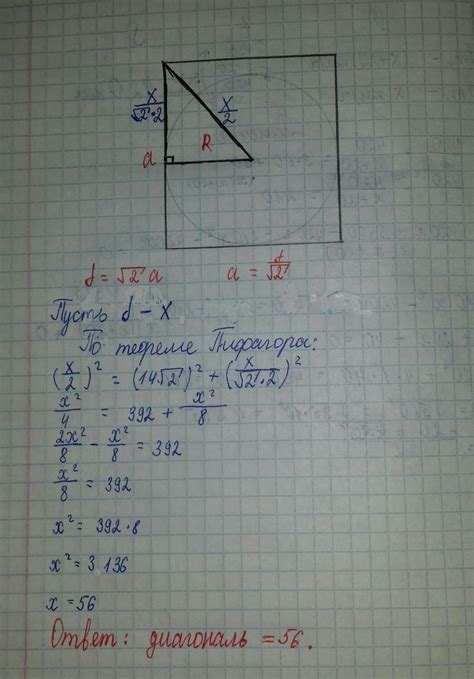 x/(√2·2)
x/2
R
a
d = √2 a
a = d/√2
Пусть d – x
По теореме Пифагора:
(x/2)² = (14√2)² + (x/(√2·2))²
x²/4 = 392 + x²/8
2x²/8 - x²/8 = 392
x²/8 = 392
x² = 392·8
x² = 3 136
x = 56
Ответ: диагональ = 56.